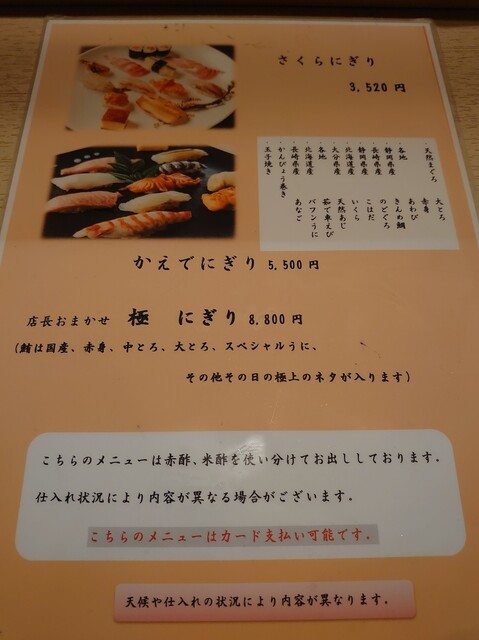 さくらにぎり
3,520 円
・天然まぐろ 大とろ
赤身
・各地 あわび
・静岡県産 きんめ鯛
・長崎県産 のどぐろ
・静岡県産 こはだ
・北海道産 いくら
・大分県産 天然あじ
・各地 茹で車えび
・北海道産 バフンうに
・長崎県産 あなご
・かんぴょう巻き
・玉子焼き
かえでにぎり 5,500 円
店長おまかせ 極 にぎり 8,800 円
(鮪は国産、赤身、中とろ、大とろ、スペシャルうに、
その他その日の極上のネタが入ります)
こちらのメニューは赤酢、米酢を使い分けてお出ししております。
仕入れ状況により内容が異なる場合がございます。
こちらのメニューはカード支払い可能です。
天候や仕入れの状況により内容が異なります。